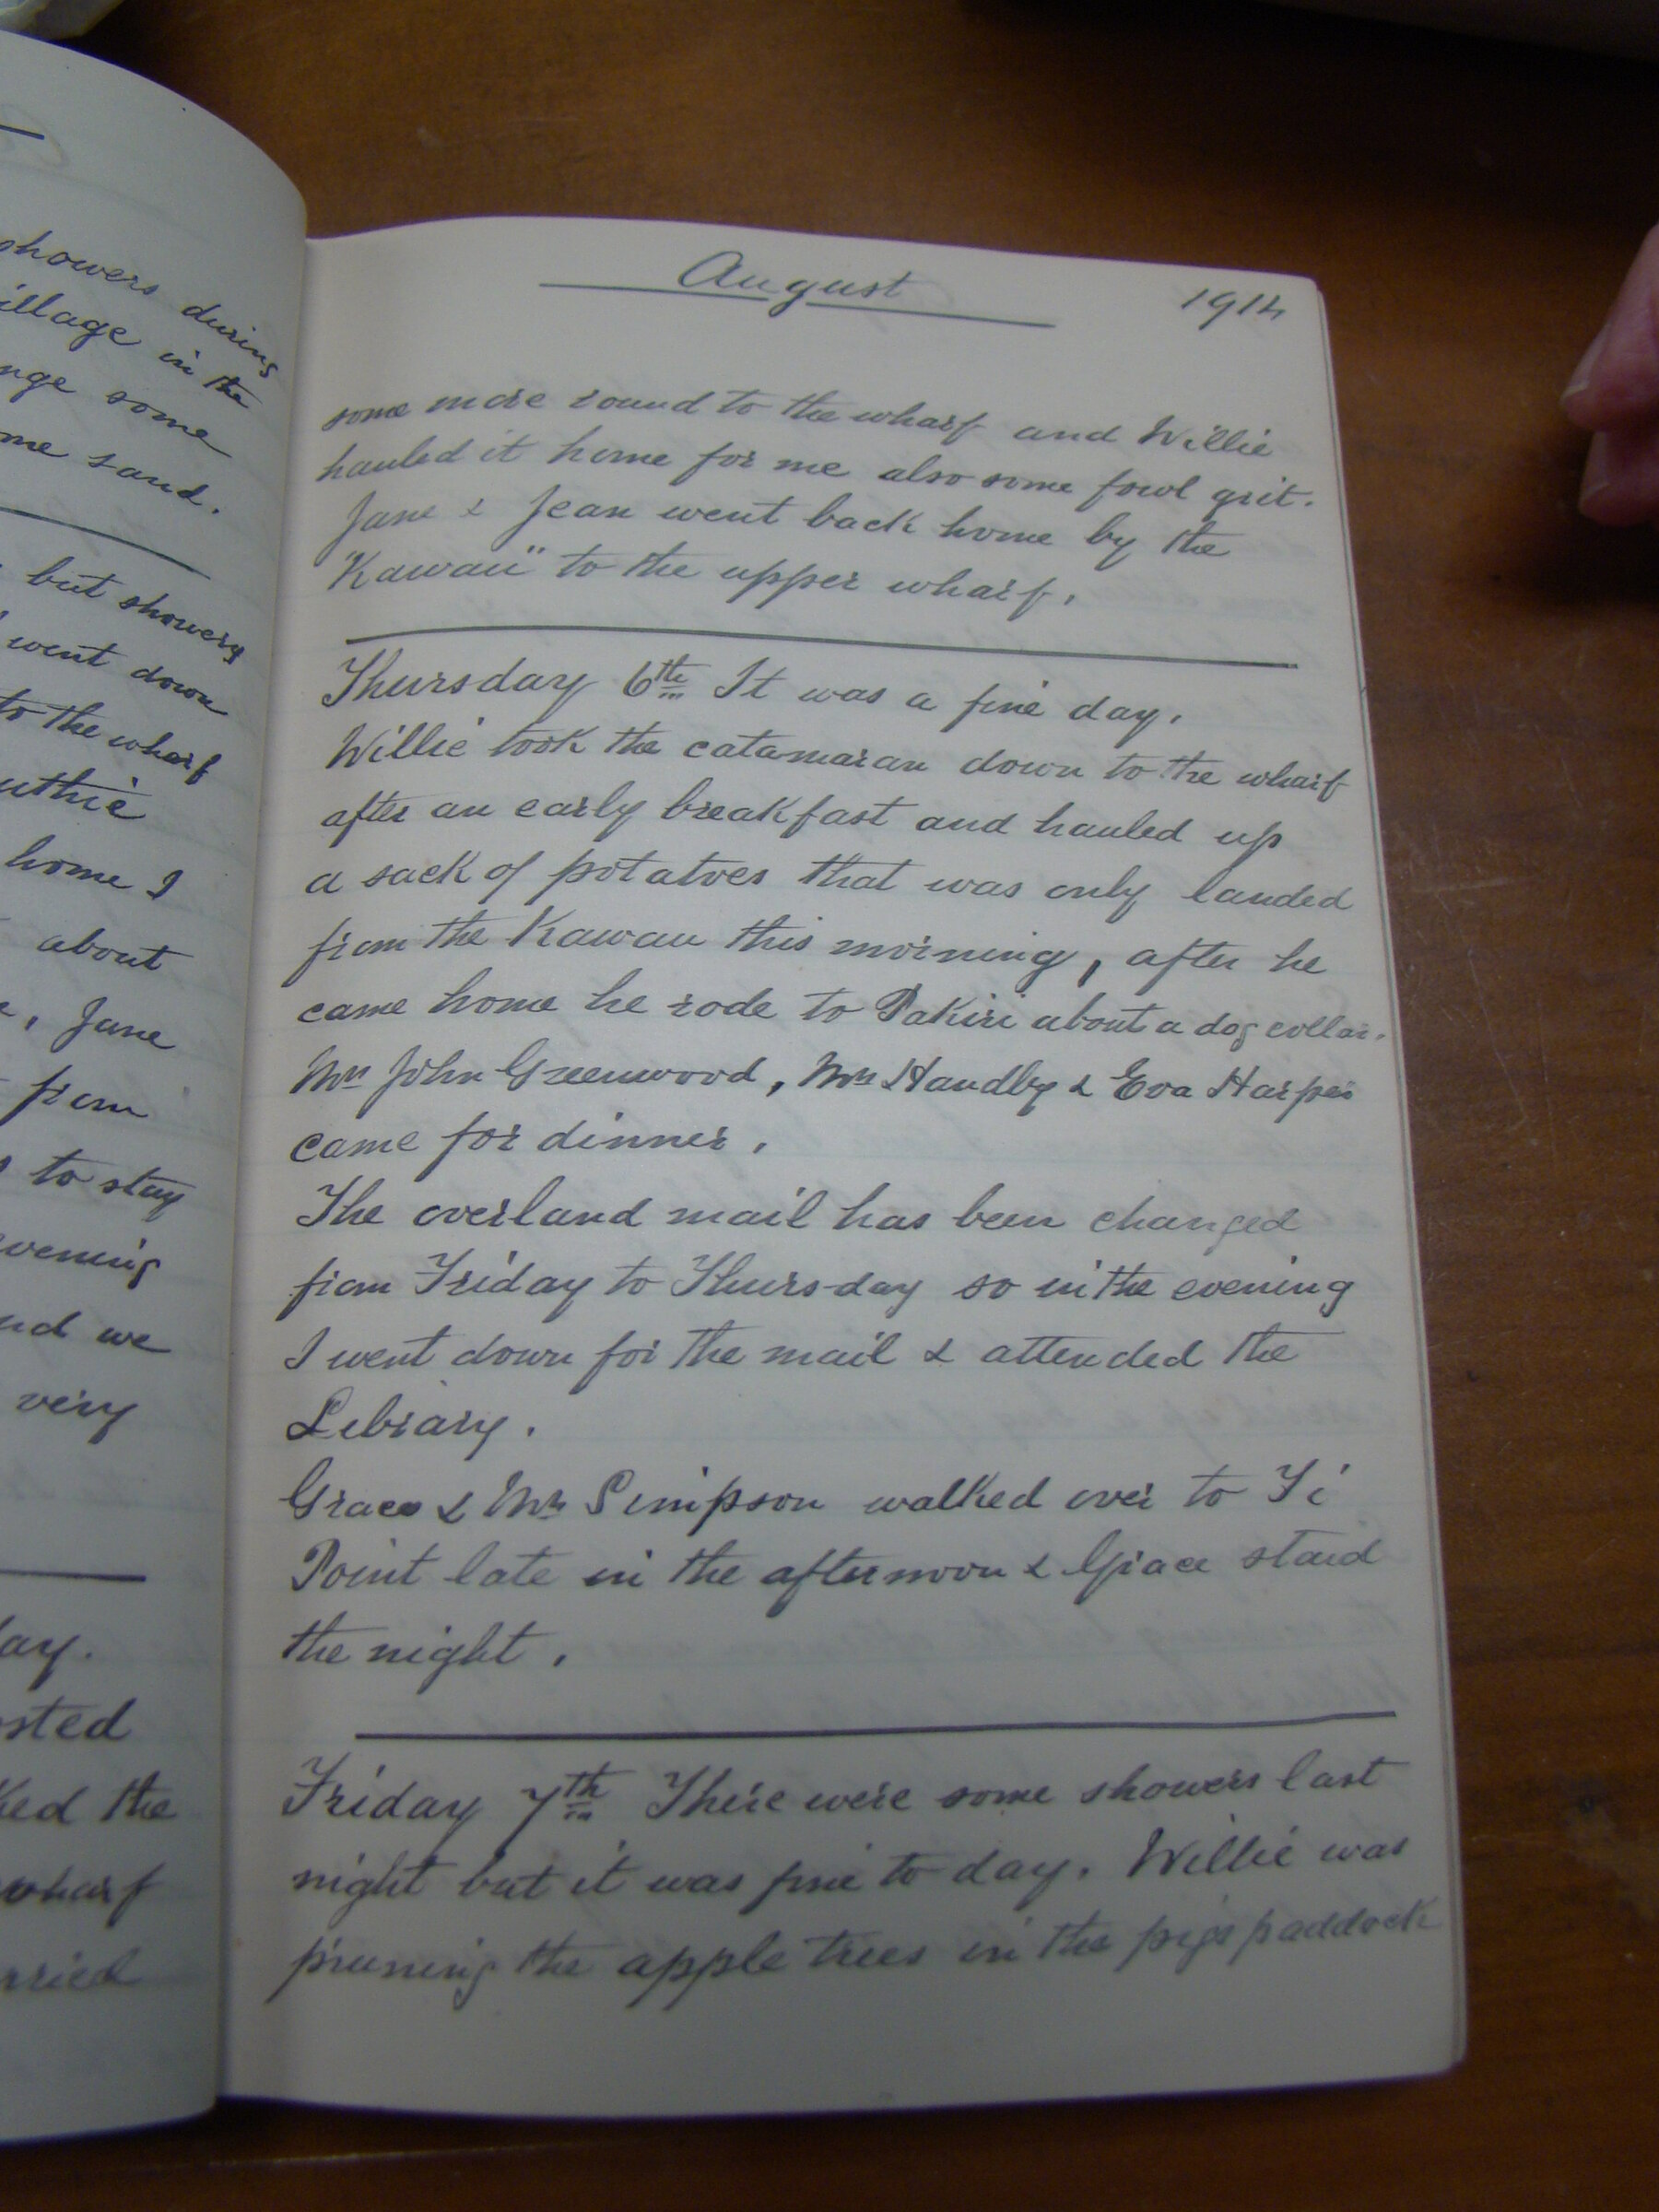 showers during
illage in the
nge some
me sand.
but showery
went down
to the wharf
uthie
home I
about
, Jane
from
to stay
evening
nd we
very
ay.
sted
ked the
wharf
rried
August 1914
some more round to the wharf and Willie
hauled it home for me also some fowl grit.
Jane & Jean went back home by the
"Kawau" to the upper wharf.
Thursday 6th It was a fine day.
Willie took the catamaran down to the wharf
after an early breakfast and hauled up
a sack of potatoes that was only landed
from the Kawau this morning, after he
came home he rode to Pakiri about a dog collar.
Mrs John Greenwood, Mrs Handby & Eva Harper
came for dinner.
The overland mail has been changed
from Friday to Thursday so in the evening
I went down for the mail & attended the
Library.
Grace & Mr Simpson walked over to Ti
Point late in the afternoon & Grace staid
the night.
Friday 7th There were some showers last
night but it was fine to day. Willie was
pruning the apple trees in the pigs paddock